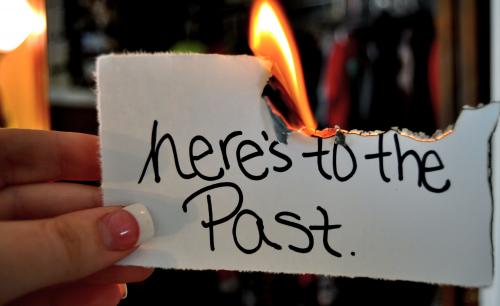 here's to the
Past.